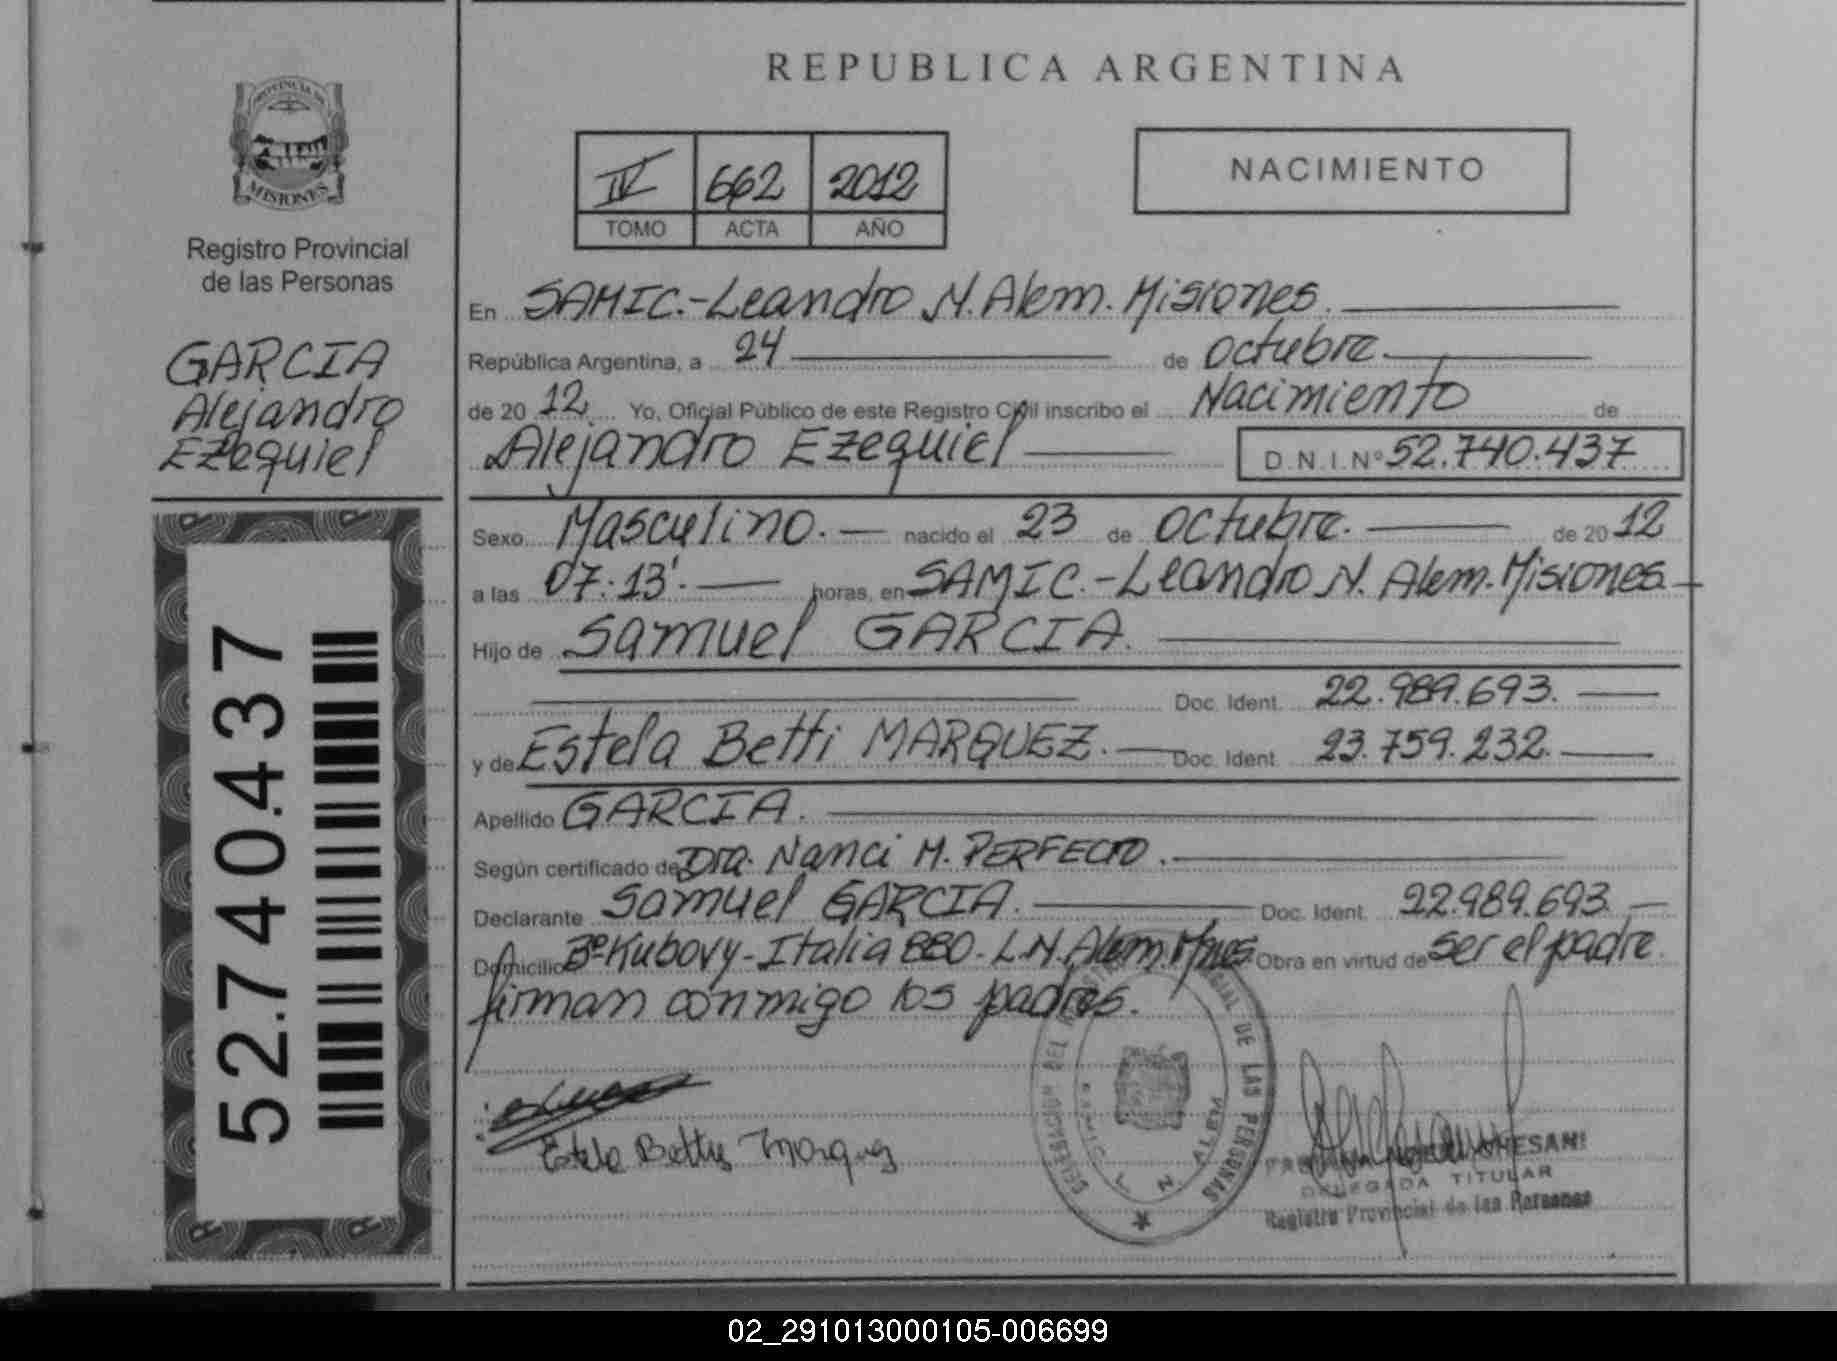 REPUBLICA ARGENTINA
PROVINCIA DE
MISIONES
Registro Provincial
de las Personas
IV 662 2012
TOMO ACTA AÑO
NACIMIENTO
GARCIA
Alejandro
Ezequiel
52.740.437
En SAMIC.-Leandro N. Alem. Misiones.
República Argentina, a 24 de octubre.
de 20 12 Yo, Oficial Público de este Registro Civil inscribo el Nacimiento de
Alejandro Ezequiel D.N.I.Nº 52.740.437
Sexo Masculino. nacido el 23 de octubre. de 20 12
a las 07.13'. horas, en SAMIC.-Leandro N. Alem. Misiones.
Hijo de Samuel GARCIA.
Doc. Ident. 22.989.693.
y de Estela Betti MARQUEZ. Doc. Ident. 23.759.232.
Apellido GARCIA.
Según certificado de Dra. Nanci M. PERFECTO.
Declarante Samuel GARCIA. Doc. Ident. 22.989.693.
Domicilio Bº Kubovy-Italia 880. L.N. Alem. Mnes. Obra en virtud de ser el padre.
firman conmigo los padres.
Estela Bettis Marquez
DE LAS PERSONAS
DELEGADA TITULAR
Registro Provincial de las Personas
02_291013000105-006699